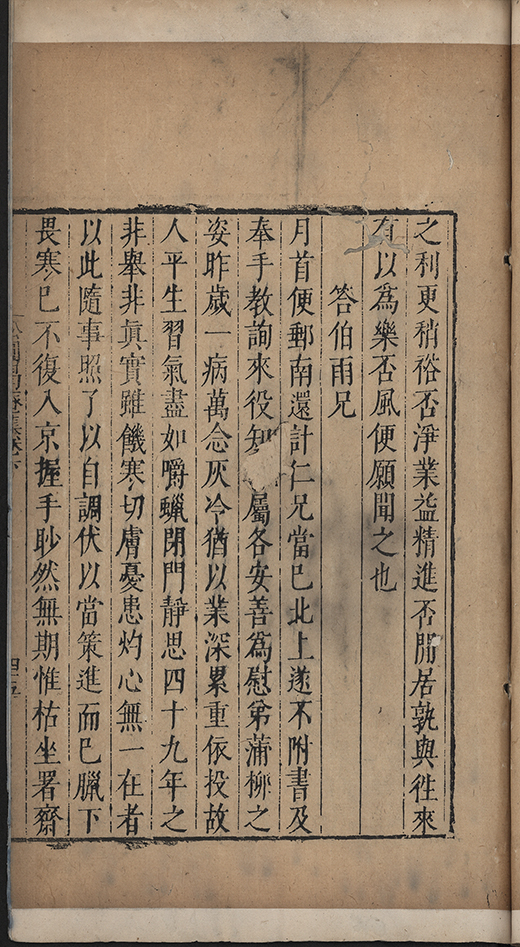 之利更稍裕否淨業益精進否閒居孰與往來
有以爲樂否風便願聞之也
答伯雨兄
月首便郵南還計仁兄當已北上遂不附書及
奉手教詢來役知屬各安善爲慰弟蒲柳之
姿昨歲一病萬念灰冷猶以業深累重依投故
人平生習氣盡如嚼蠟閉門靜思四十九年之
非舉非眞實雖饑寒切膚憂患灼心無一在者
以此隨事照了以自調伏以當策進而已臘下
畏寒已不復入京握手眇然無期惟枯坐署齋
卷下
四十五